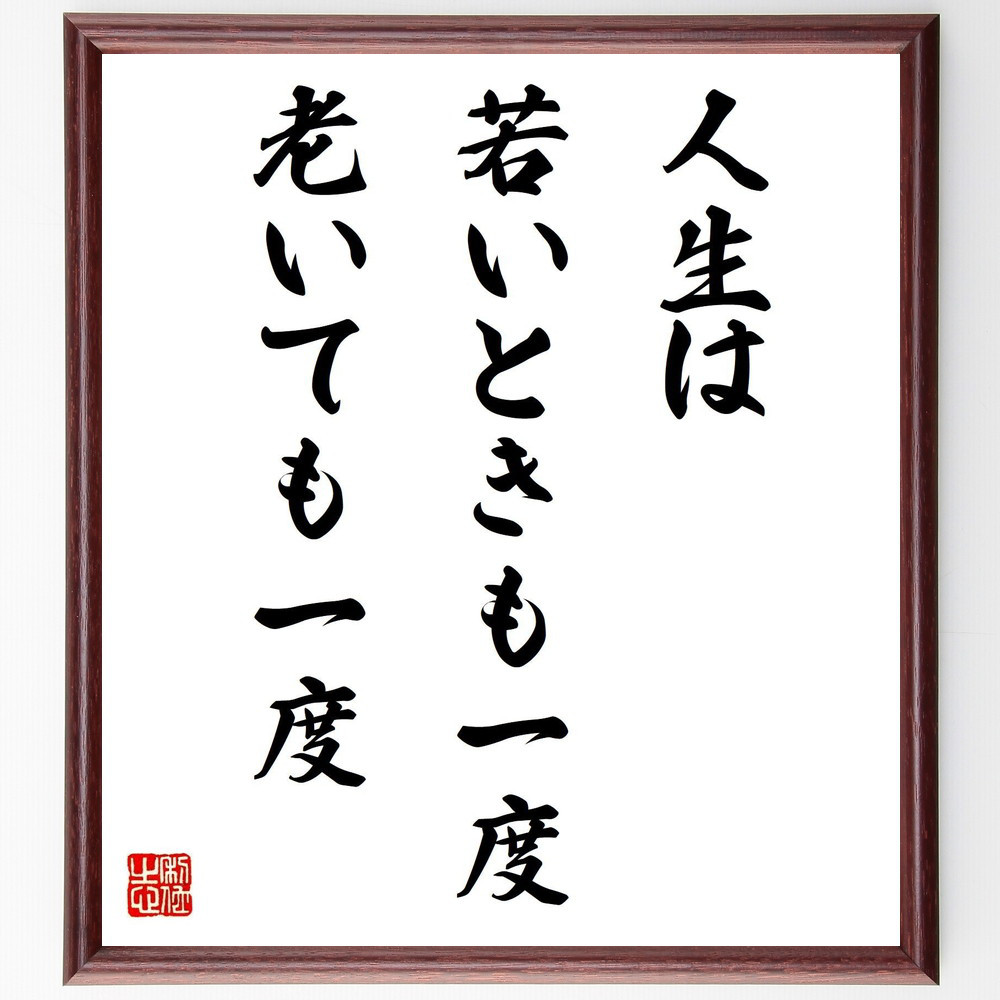 人生は
若いときも一度
老いても一度